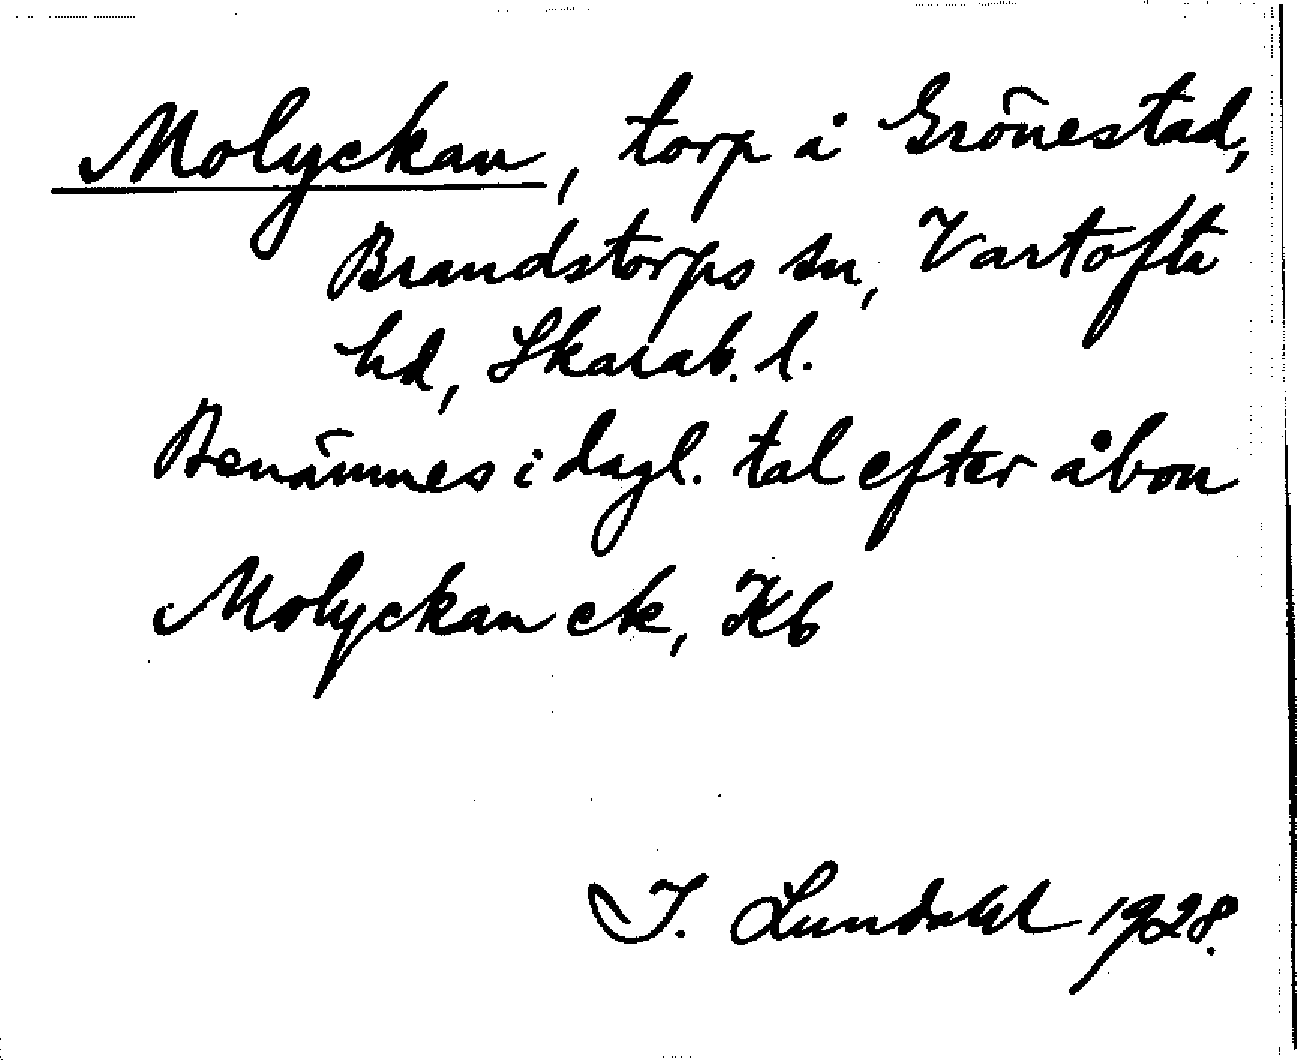 Molyckan, torp å Grönestad,
Brandstorps sn, Vartofta
hd, Skarab. l.
Benämnes i dagl. tal efter åbon
Molyckan ek, Kb
I. Lundahl 1928.